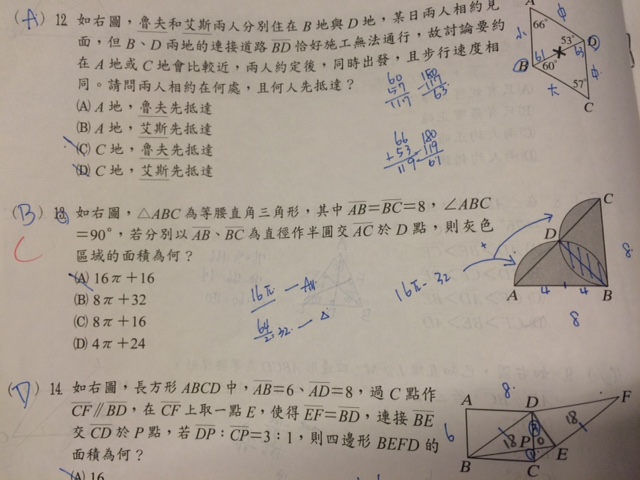 (A) 12 如右圖，魯夫和艾斯兩人分別住在 B 地與 D 地，某日兩人相約見
面，但 B、D 兩地的連接道路 BD 恰好施工無法通行，故討論要約
在 A 地或 C 地會比較近，兩人約定後，同時出發，且步行速度相
同。請問兩人相約在何處，且何人先抵達？
(A) A 地，魯夫先抵達
(B) A 地，艾斯先抵達
(C) C 地，魯夫先抵達
(D) C 地，艾斯先抵達
A
66°
53°
D
61
63
B
60°
57°
C
60
57
117
180
117
63
66
+53
119
180
119
61
(B) 13. 如右圖，△ABC 為等腰直角三角形，其中 AB=BC=8，∠ABC
C
=90°，若分別以 AB、BC 為直徑作半圓交 AC 於 D 點，則灰色
區域的面積為何？
(A) 16π+16
(B) 8π+32
(C) 8π+16
(D) 4π+24
16π
64
2
32
△
16π-32
C
D
A
B
4
4
8
8
(D) 14. 如右圖，長方形 ABCD 中，AB=6、AD=8，過 C 點作
CF // BD，在 CF 上取一點 E，使得 EF=BD，連接 BE
交 CD 於 P 點，若 DP：CP=3：1，則四邊形 BEFD 的
面積為何？
(A) 16
8
A
D
F
6
18
18
P
E
B
C